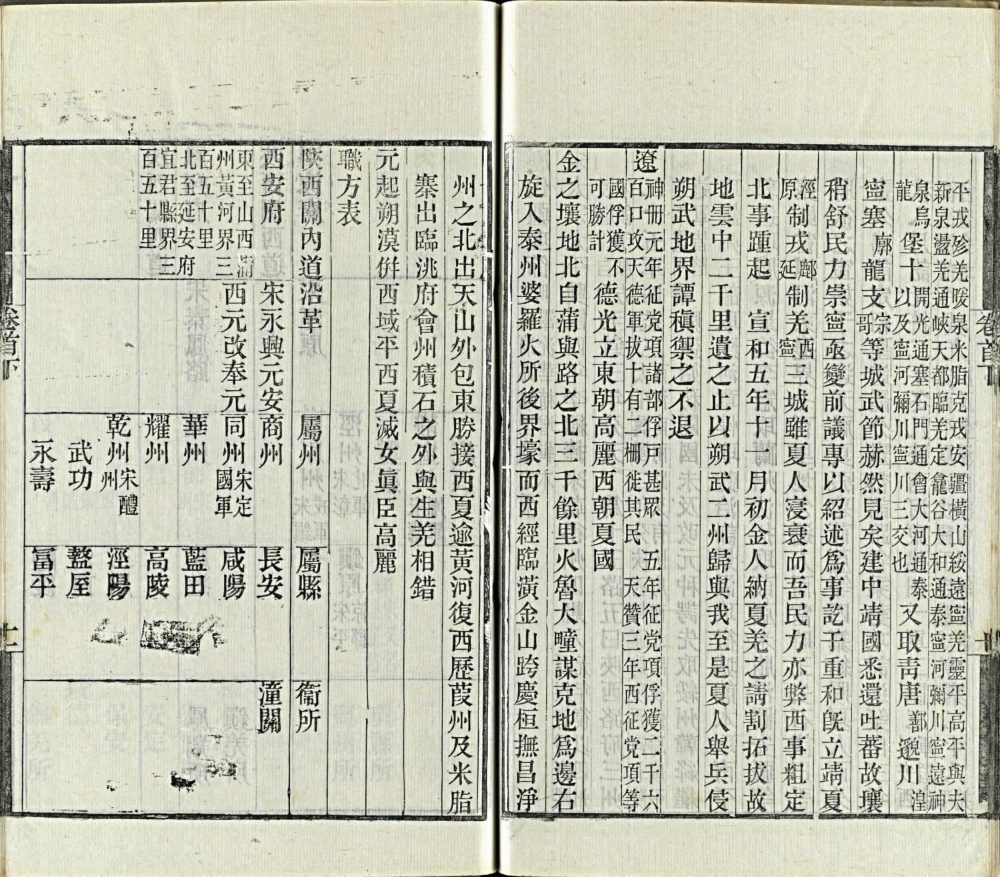 平戎殄羌暖泉米脂克戎安疆橫山綏遠寧羌靈平高平與夫
新泉盪羌通峽天都臨羌定龕谷大和通泰寧河彌川寧遠神
泉烏龍堡十開光通塞石門通會大河通泰以及寧河彌川寧川三交也又取靑唐鄯邈川湟
寧塞廓龍支宗哥等城武節赫然見矣建中靖國悉還吐蕃故壤
稍舒民力崇寧亟變前議專以紹述爲事訖于重和旣立靖夏
涇原制戎鄜延制羌西寧三城雖夏人寖衰而吾民力亦弊西事粗定
北事踵起 宣和五年十一月初金人納夏羌之請割拓拔故
地雲中二千里遺之止以朔武二州歸與我至是夏人舉兵侵
朔武地界譚稹禦之不退
遼神冊元年征党項諸部俘戸甚眾 五年征党項俘獲二千六
百口攻天德軍拔十有二柵徙其民 天贊三年西征党項等
國俘獲不可勝計 德光立東朝高麗西朝夏國
金之壤地北自蒲與路之北三千餘里火魯火疃謀克地爲邊右
旋入泰州婆羅火所後界壕而西經臨潢金山跨慶桓撫昌淨
卷首下
州之北出天山外包東勝接西夏逾黃河復西歷葭州及米脂
寨出臨洮府會州積石之外與生羌相錯
元起朔漠倂西域平西夏滅女眞臣高麗
職方表
陝西關內道 沿革 屬州 屬縣 衞所
西安府 宋永興元安 商州 長安 潼關
東至山西蒲州黃河界三 西元改奉元 同州宋定國軍 咸陽
百五十里北至延安府 華州 藍田
宜君縣界三百五十里 耀州 高陵
乾州宋醴州 涇陽
武功 盩厔
永壽 富平
卷首下
十一